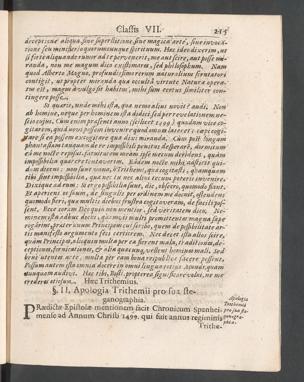 Classis VII. 215
deceptione aliqua, sine superstitione, sine magica arte, sine invoca-
tione seu ministerio quorumcunque spirituum. Hæc ideo dixerim, ut
si forte aliquando rumor ad te pervenerit, me aut scire, aut posse mi-
randa, non me magum dico existimares, sed philosophum. Nam
quod Alberto Magno, profundissimo rerum naturalium scrutatori
contigit, ut propter miranda qua occulta virtute Natura opera-
tus est, magus à vulgo sit habitus, mihi suum certus similiter con-
tingere posse.
At quæris, unde mihi ista, qua nemo alius novit? audi. Non
ab homine, neque per hominem ista didici sed per revelationem ne-
scio cujus. Cum enim præsenti anno (scribitur 1499.) quadam vice co-
gitarem, quid novi possem invenire quod omnes lateret: cœpi cogi-
tare si ea possem excogitare quæ dixi miranda. Cum post longam
phantasiam tanquam de re impossibili penitus desperare, dormitum
eo me nocte reposui, stultitiam meam ipse mecum deridens, quòd
impossibilia quærere tentaverim. Eadem nocte mihi adstitit quis-
dam dicens: non sunt vana, ô Trithemi, quæ cogitasti, quanquam
tibi sint impossibilia, quæ nec tu nec alius tecum poteris invenire.
Dixi que ad eum: si ergo possibilia sunt, dic, obsecro, quomodo fiant.
Et aperiens os suum, de singulis per ordinem me docuit, ostendens
quomodo fieri, quæ multis diebus frustra cogitaveram, de facili pos-
sent. Ecce coram Deo quia non mentior, sed veritatem dico. Ne-
minem ista adhuc docui, quamvis multi promittentes magna sæpe
rogârint, præter unum Principem cui scribo, quem de possibilitate ar-
tis manifesto argumento feci certiorem. Nec decet ista alios scire,
quam Principes, aliquin multa per ea fierent mala, traditionum, de-
ceptionum, fornicationum, & alia quæcunq; vellent homines mali. Sed
bene utentes arte, multa per eam bona reipublicæ facere possent.
Possum autem ista omnia docere in omni lingua totius mundi, quam
nunquam audivi. Hæc tibi,
crederes otiosum. Hæc Trithemius.
§. II. Apologia Trithemii pro sua ste-
ganographia.
PRædictæ Epistolæ mentionem facit Chronicum Spanhei-
mense ad Annum Christi 1499. qui fuit annus regiminis
Trithe-
Apologia
Trithemii
pro sua ste-
ganogra-
phia.